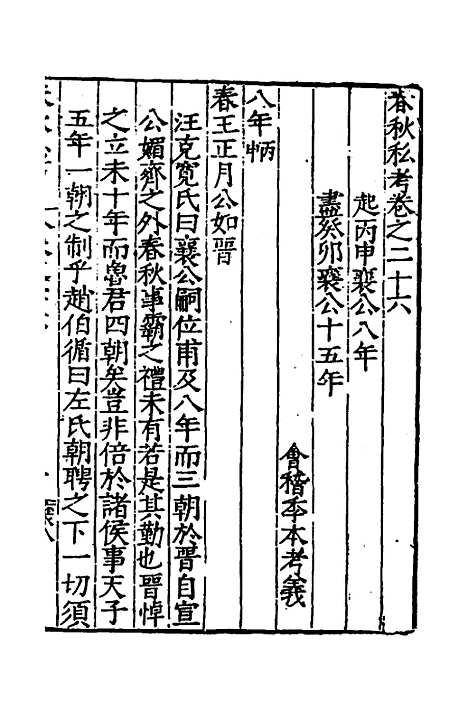 春秋私考卷之二十六
起丙申襄公八年
盡癸卯襄公十五年
會稽季本考義
八年丙申
春王正月公如晉
汪克寬氏曰襄公嗣位甫及八年而三朝於晉自宣
公媚齊之外春秋事霸之禮未有若是其勤也晉悼
之立未十年而魯君四朝矣豈非倍於諸侯事天子
五年一朝之制乎趙伯循曰左氏朝聘之下一切須